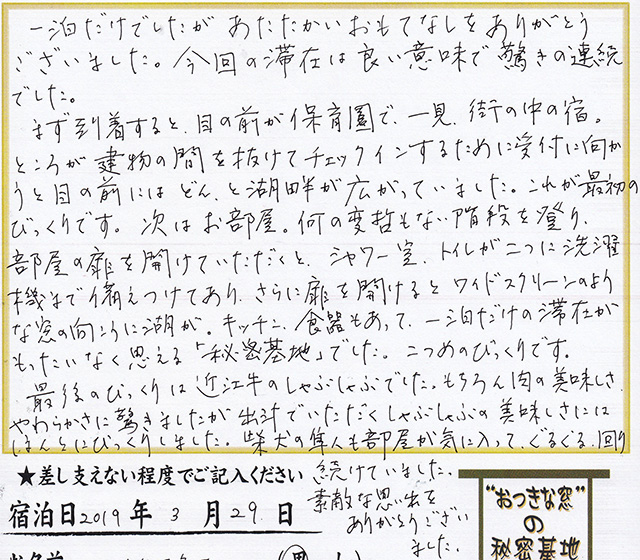 一泊だけでしたが あたたかいおもてなしをありがとう
ございました。今回の滞在は良い意味で驚きの連続
でした。
まず到着すると、目の前が保育園で、一見、街の中の宿。
ところが建物の間を抜けてチェックインするために受付に向か
うと目の前には どん、と湖畔が広がっていました。これが最初の
びっくりです。次はお部屋。何の変哲もない階段を登り、
部屋の扉を開けていただくと、シャワー室、トイレが二つに洗濯
機まで備えつけてあり、さらに扉を開けると ワイドスクリーンのよう
な窓の向こうに湖が。キッチン、食器もあって、一泊だけの滞在が
もったいなく思える「秘密基地」でした。二つめのびっくりです。
最後のびっくりは近江牛のしゃぶしゃぶでした。もちろん肉の美味しさ、
やわらかさに驚きましたが 出汁でいただくしゃぶしゃぶの美味しさには
ほんとにびっくりしました。柴犬の隼人も部屋が気に入って、ぐるぐる回り
続けていました。
素敵な思い出を
ありがとうござい
ました。
★差し支えない程度でご記入ください
宿泊日2019年 3 月 29 日
"おっきな窓"
の
秘密基地